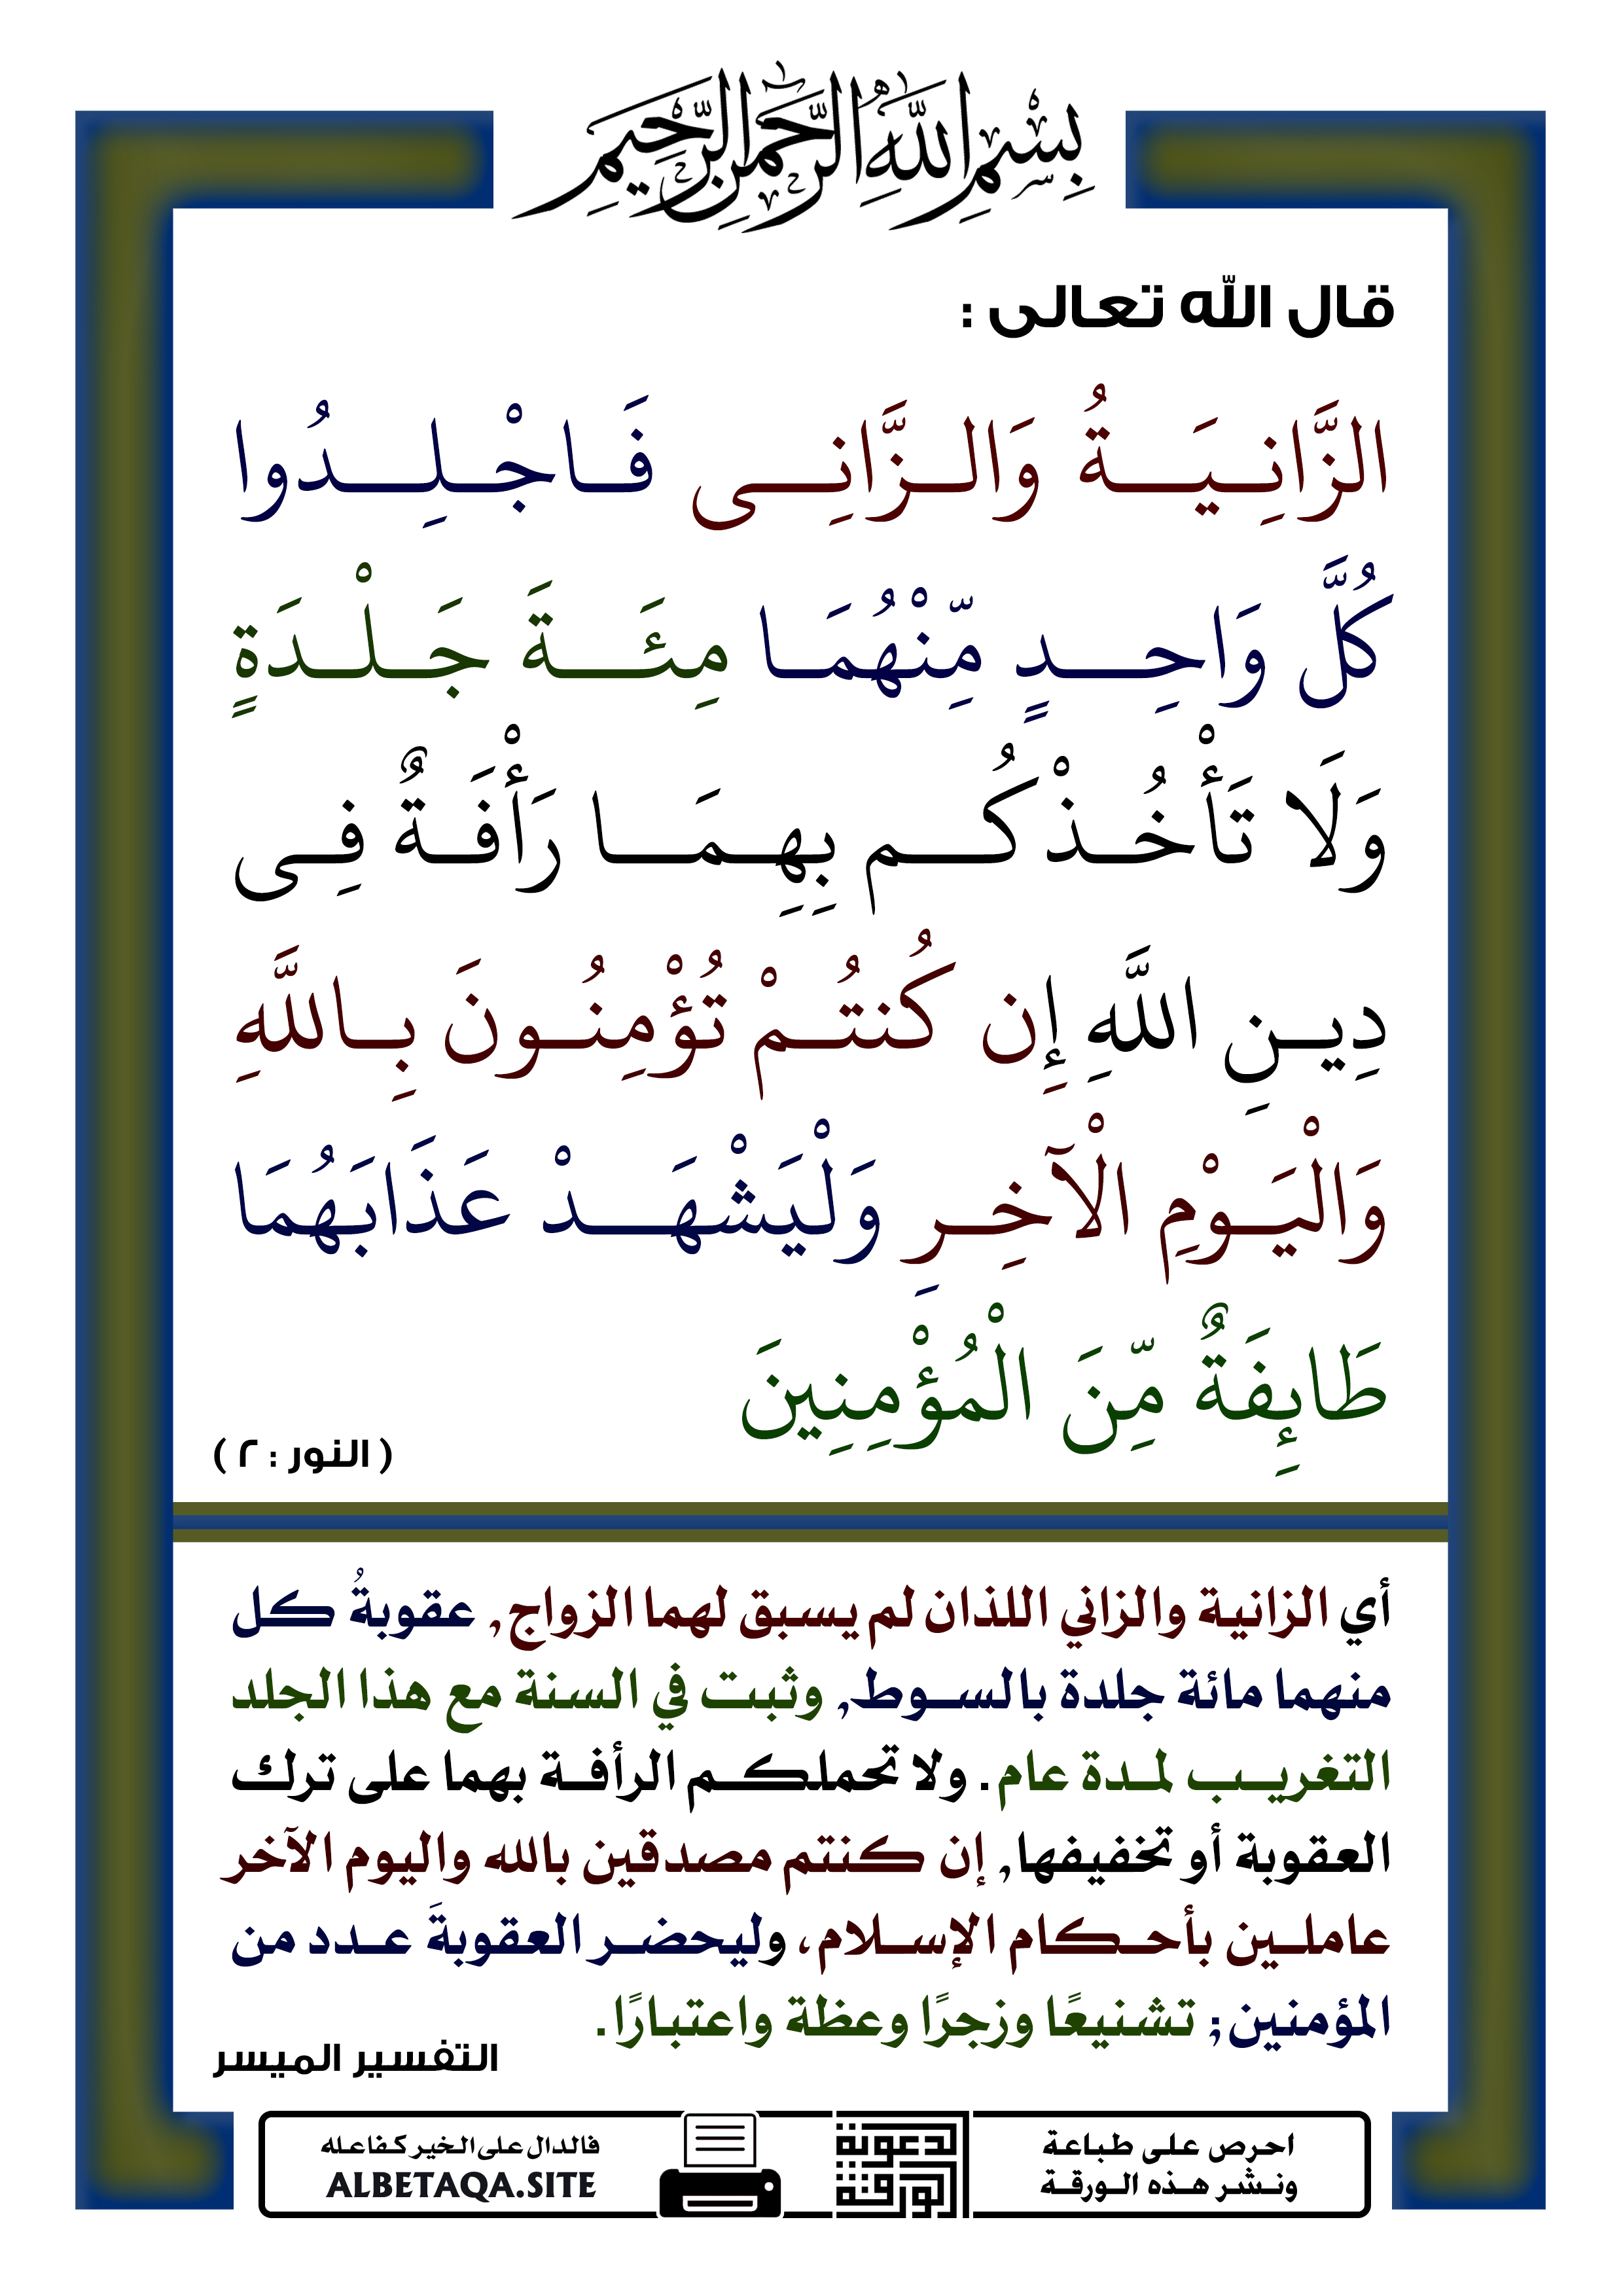 بِسْمِ اللَّهِ الرَّحْمَٰنِ الرَّحِيمِ
قال الله تعالى :
الزَّانِيَةُ وَالزَّانِى فَاجْلِدُوا
كُلَّ وَاحِدٍ مِّنْهُمَا مِئَةَ جَلْدَةٍ
وَلَا تَأْخُذْكُم بِهِمَا رَأْفَةٌ فِى
دِينِ اللَّهِ إِن كُنتُمْ تُؤْمِنُونَ بِاللَّهِ
وَالْيَوْمِ الْآخِرِ وَلْيَشْهَدْ عَذَابَهُمَا
طَائِفَةٌ مِّنَ الْمُؤْمِنِينَ
( النور : ٢ )
أي الزانية والزاني اللذان لم يسبق لهما الزواج, عقوبةُ كل
منهما مائة جلدة بالسوط, وثبت في السنة مع هذا الجلد
التغريب لمدة عام. ولا تحملكم الرأفة بهما على ترك
العقوبة أو تخفيفها, إن كنتم مصدقين بالله واليوم الآخر
عاملين بأحكام الإسلام، وليحضر العقوبةَ عدد من
المؤمنين; تشنيعًا وزجرًا وعظة واعتبارًا.
التفسير الميسر
احرص على طباعة
ونشر هذه الورقة
الدعوية
الورقة
فالدال على الخير كفاعله
ALBETAQA.SITE